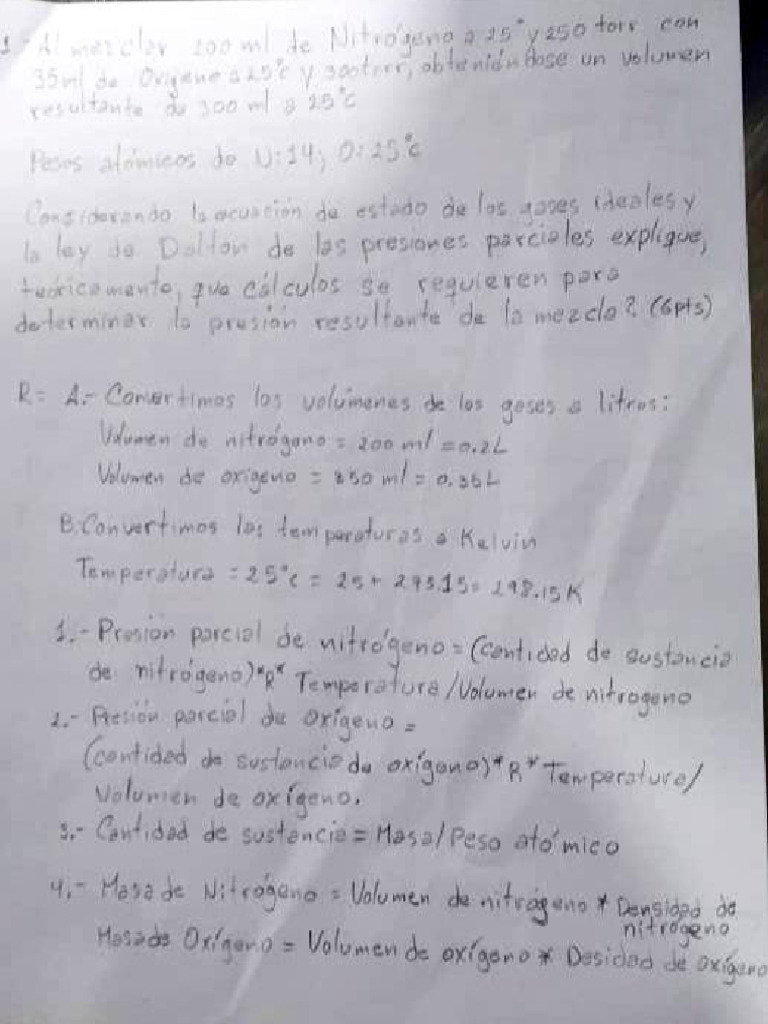 1- Al mezclar 200 ml de Nitrógeno a 25° y 250 torr con
35ml de Oxigeno a 25°c y 300torr, obteniéndose un volumen
resultante de 300 ml a 25°c
Pesos atómicos de N:14; O:25°c
Considerando la ecuación de estado de los gases ideales y
la ley de Dalton de las presiones parciales explique,
teóricamente, que cálculos se requieren para
determinar la presión resultante de la mezcla? (6pts)
R= A.- Convertimos los volúmenes de los gases a litros:
Volumen de nitrógeno = 200 ml = 0.2L
Volumen de oxígeno = 350 ml = 0.35L
B. Convertimos las temperaturas a Kelvin
Temperatura = 25°c = 25 + 273.15 = 298.15K
1.- Presion parcial de nitrógeno = (Cantidad de sustancia
de nitrógeno)*R* Temperatura/Volumen de nitrogeno
2.- Presión parcial de oxígeno =
(cantidad de sustancia de oxígeno)*R*Temperatura/
Volumen de oxígeno.
3.- Cantidad de sustancia = Masa/Peso atómico
4.- Masa de Nitrógeno = Volumen de nitrógeno * Densidad de
nitrógeno
Masa de Oxígeno = Volumen de oxígeno * Desidad de oxígeno